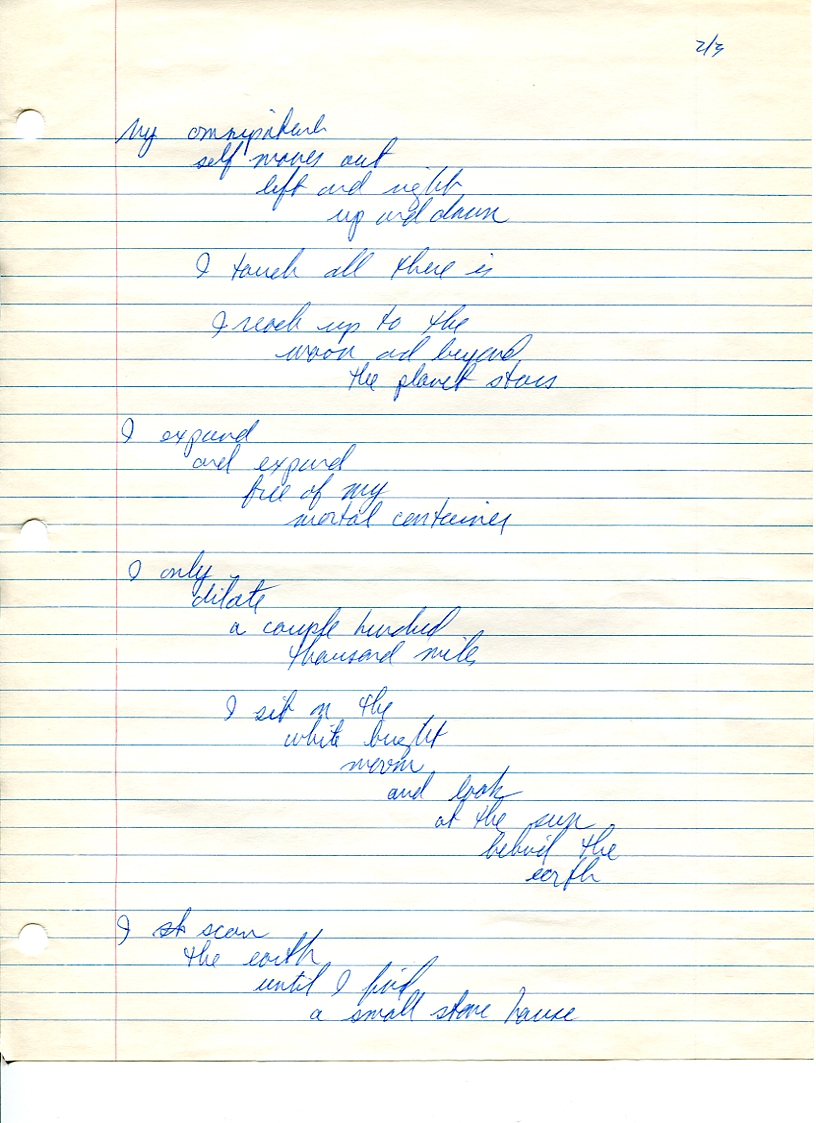 2/3
My
self moves out
left and right
up and down
I touch all there is
I reach up to the
moon and beyond
the planet stars
I expand
and expand
free of my
mortal container
I only
dilate
a couple hundred
thousand miles
I sit on the
white bright
moon
and look
at the sun
behind the
earth
I scan
the earth
until I find
a small stone house